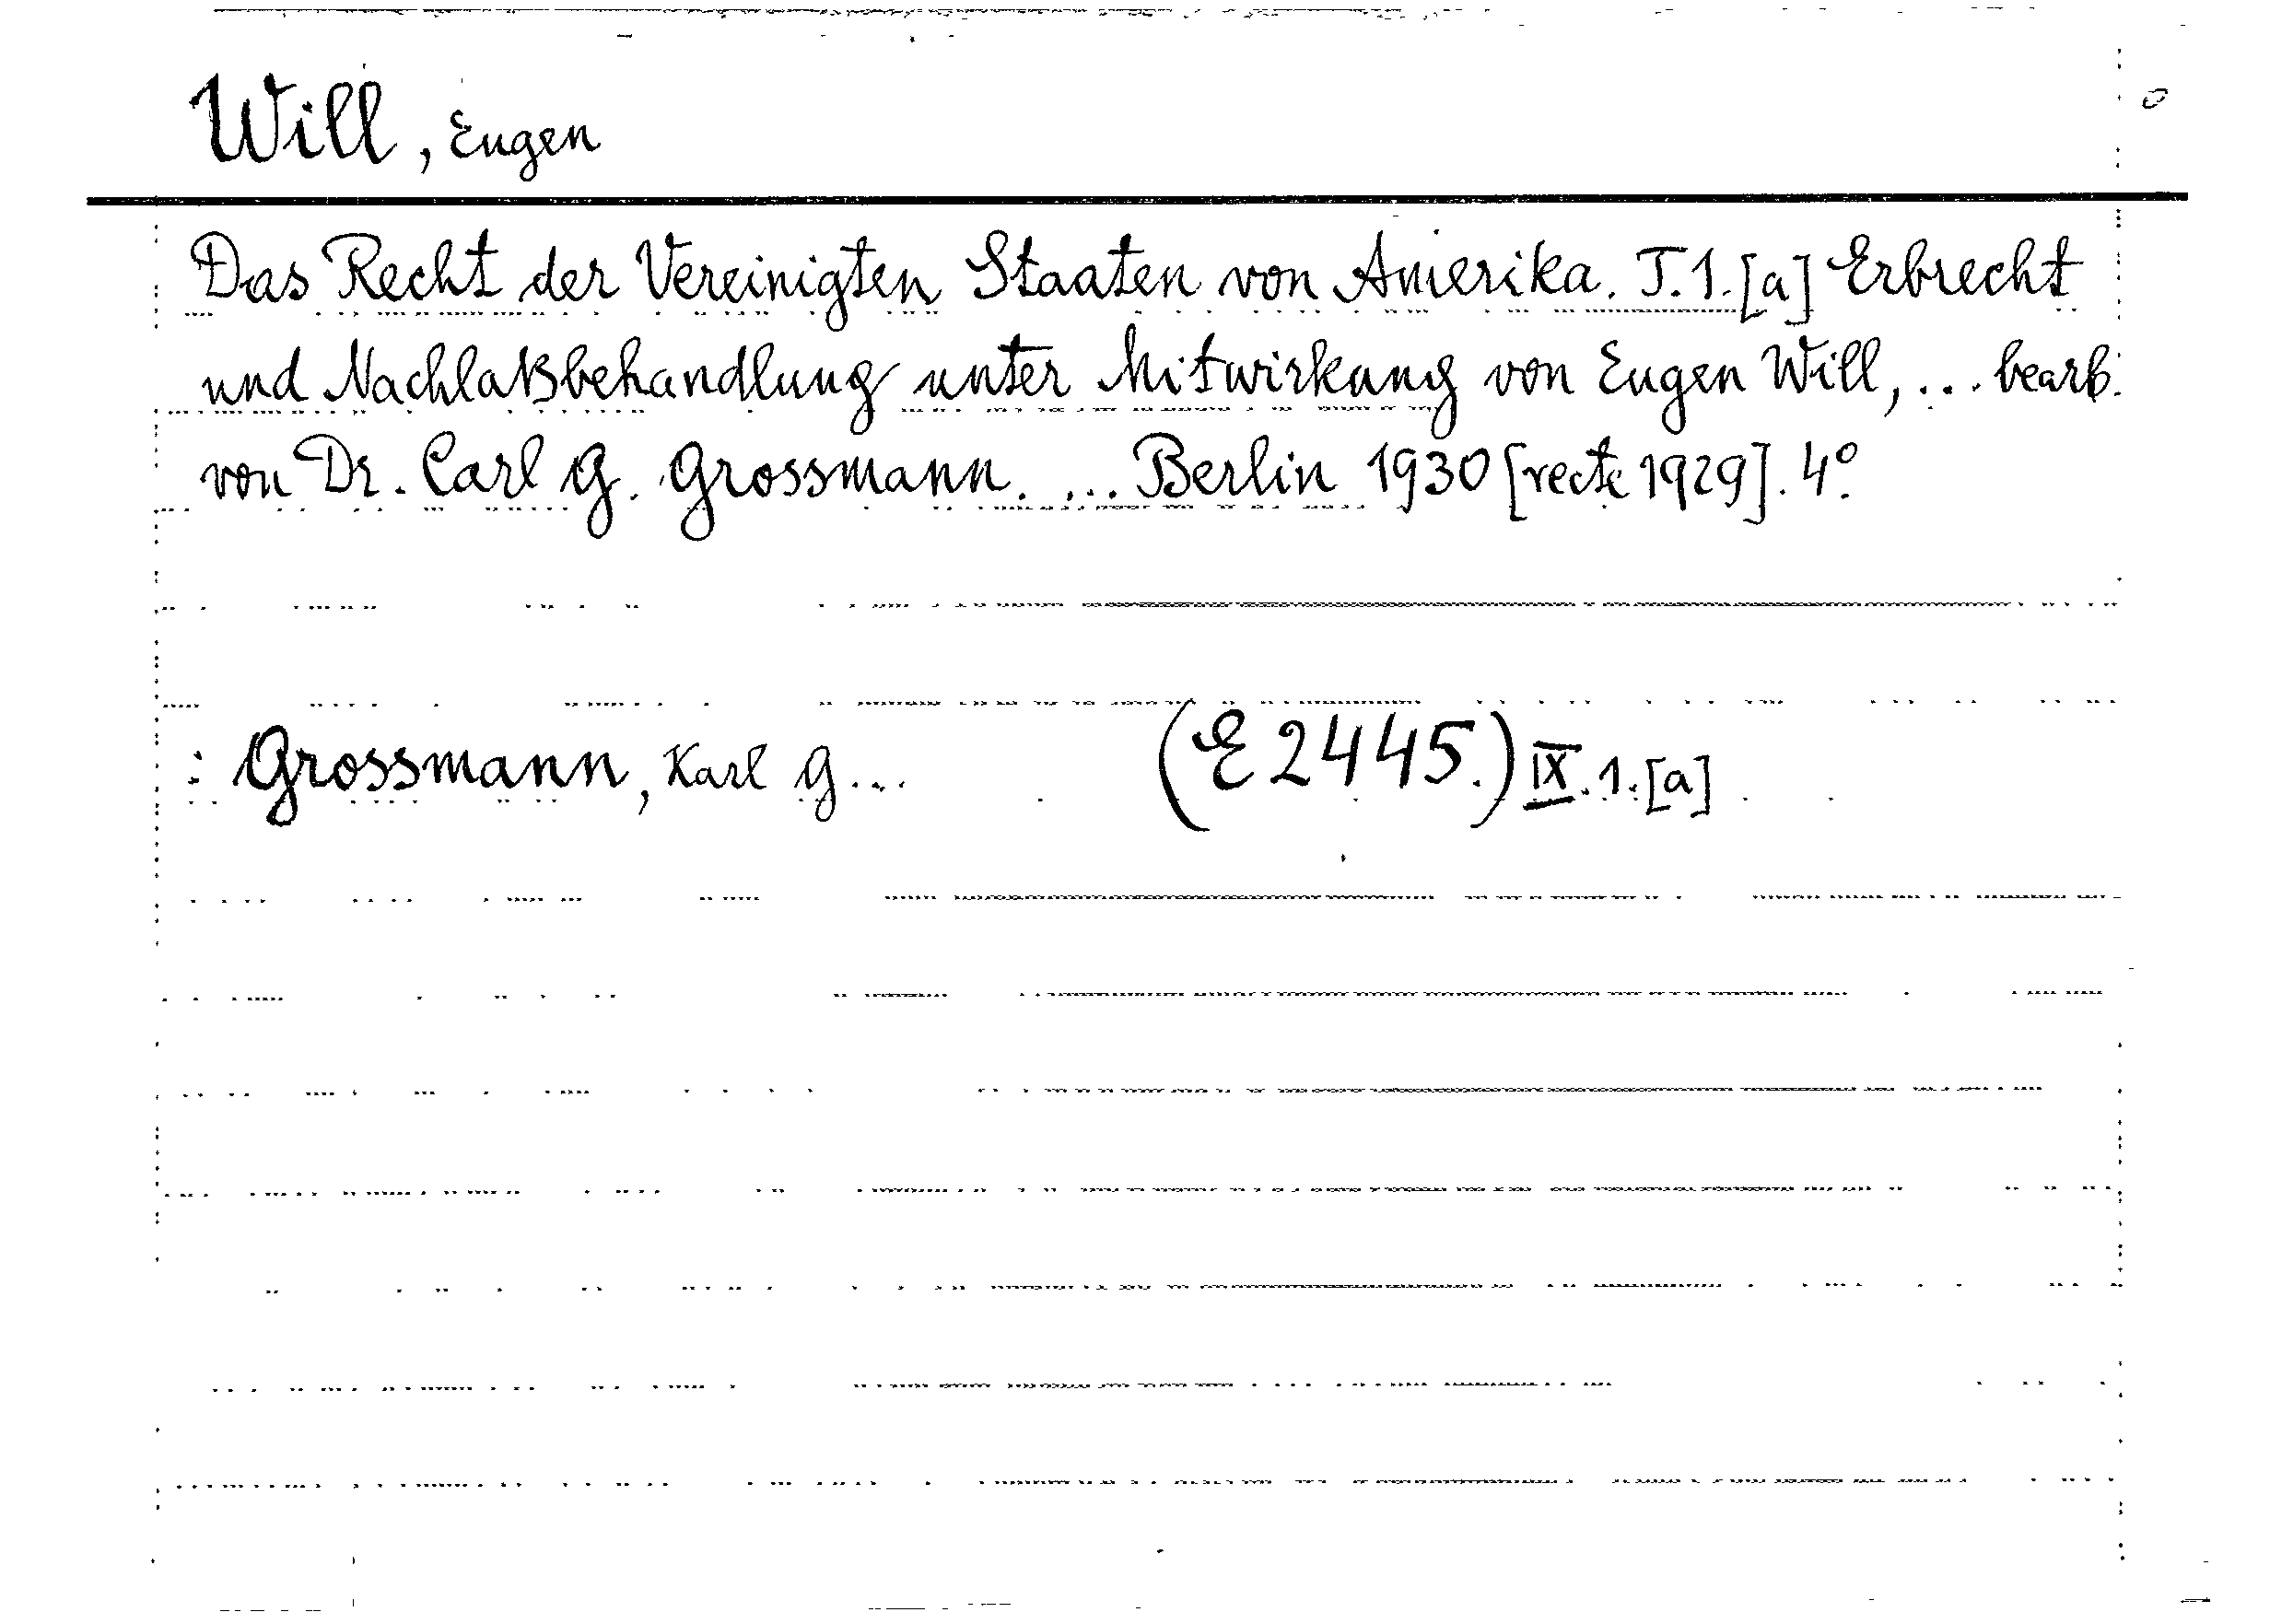 Will, Eugen
Das Recht der Vereinigten Staaten von Amerika. T.1.[a] Erbrecht
und Nachlaßbehandlung unter Mitwirkung von Eugen Will, ... bearb.
von Dr. Carl G. Grossmann. ... Berlin 1930 [recte 1929]. 4°.
: Grossmann, Karl G... (E 2445.) IX.1.[a]